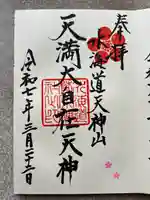 奉拝
水海道天神山
天満大自在天神
令和七年三月二十三日